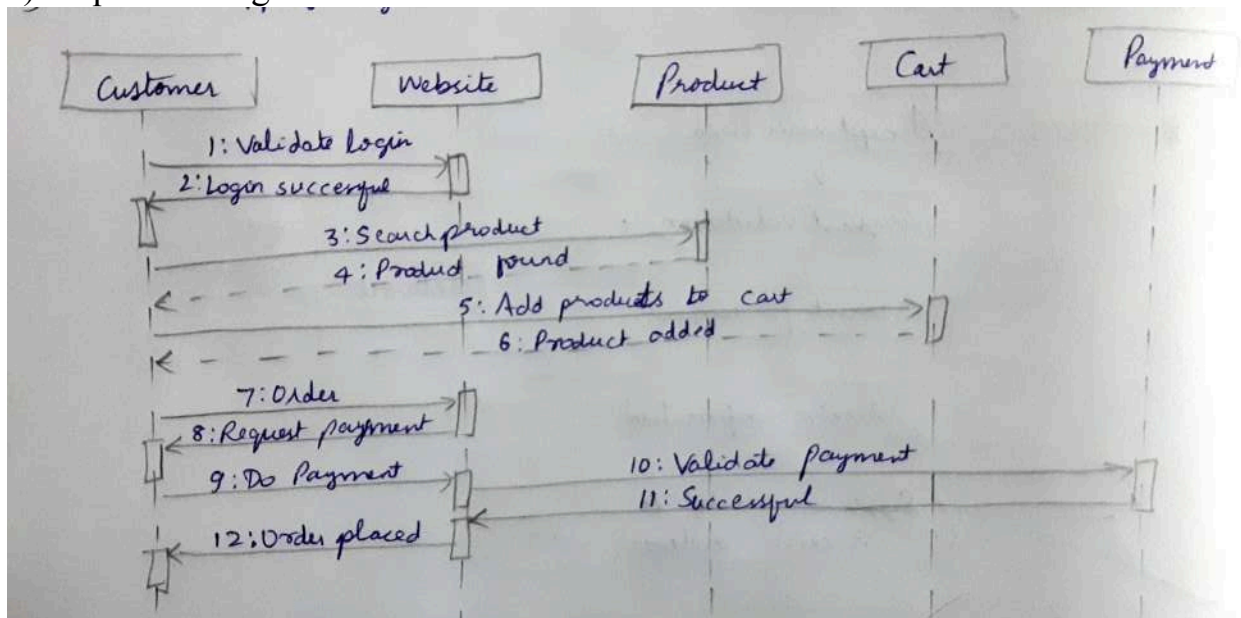 Customer
Website
Product
Cart
Payment
1: Validate login
2: Login succesful
3: Search product
4: Product found
5: Add products to cart
6: Product added
7: Order
8: Request payment
9: Do Payment
10: Validate payment
11: Successful
12: Order placed